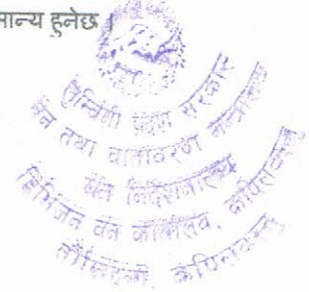 मान्य हुनेछ ।
लुम्बिनी प्रदेश सरकार
वन तथा वातावरण मन्त्रालय
वन निर्देशनालय
डिभिजन वन कार्यालय, कपिलवस्तु
कपिलवस्तु